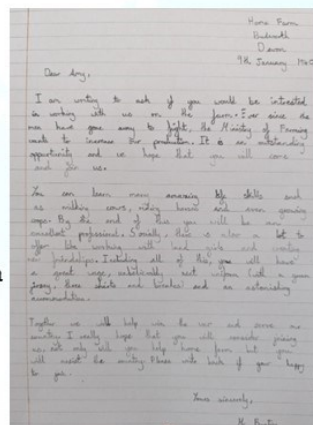 Home Farm
Devon
9th January 1940
Dear Amy,
I am writing to ask if you would be interested
in working with us on the farm. Ever since the
men have gone away to fight, the Ministry of Farming
wants to increase our production. It is an outstanding
opportunity and we hope that you will come
and join us.
You can learn many amazing life skills such
as milking cows, and even growing
crops. By the end of this you will be an
excellent professional. Socially, there is also a lot to
offer like working with land girls and creating
new friendships. Including all of this, you will have
a great wage, unbelievably neat uniform (with a green
jersey, three shirts and breeches) and an astonishing
accommodation.
Together we will help win the war and serve our
country. I really hope that you will consider joining
us, not only will you help home farm but you
will assist the country. Please write back if your happy
to join.
Yours sincerely,